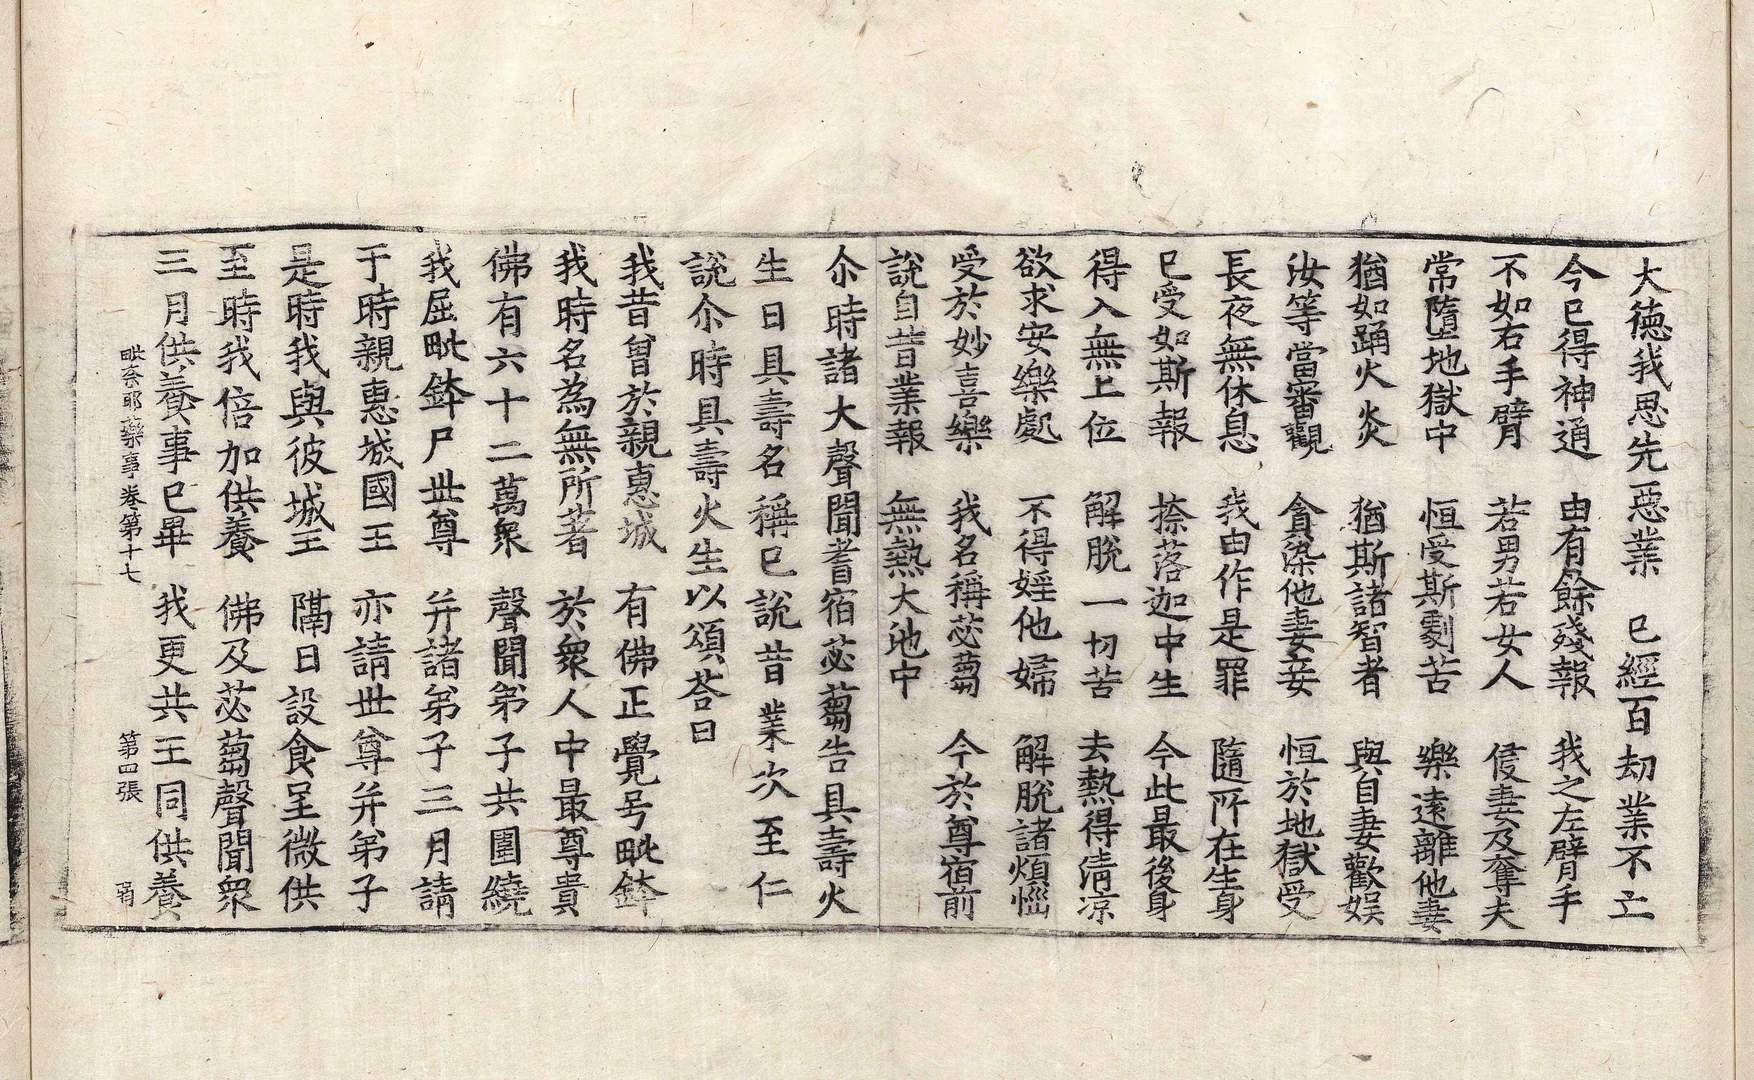 大德我思先惡業　已經百劫業不亡
今已得神通　由有餘殘報　我之左臂手
不如右手臂　若男若女人　侵妻及奪夫
常墮地獄中　恒受斯劇苦　樂遠離他妻
猶如踊火炎　猶斯諸智者　與自妻歡娛
汝等當審觀　貪染他妻妾　恒於地獄受
長夜無休息　我由作是罪　隨所在生身
已受如斯報　捺落迦中生　今此最後身
得入無上位　解脫一切苦　去熱得清涼
欲求安樂處　不得婬他婦　解脫諸煩惱
受於妙喜樂　我名稱苾蒭　今於尊宿前
說自昔業報　無熱大池中
尒時諸大聲聞耆宿苾蒭告具壽火
生曰具壽名稱已說昔業次至仁
說尒時具壽火生以頌荅曰
我昔曾於親惠城　有佛正覺号毗鉢
我時名為無所著　於衆人中最尊貴
佛有六十二萬衆　聲聞弟子共圍繞
我屈毗鉢尸世尊　并諸弟子三月請
于時親惠城國王　亦請世尊并弟子
是時我與彼城王　隔日設食呈微供
至時我倍加供養　佛及苾蒭聲聞衆
三月供養事已畢　我更共王同供養
毗奈耶藥事卷第十七　第四張